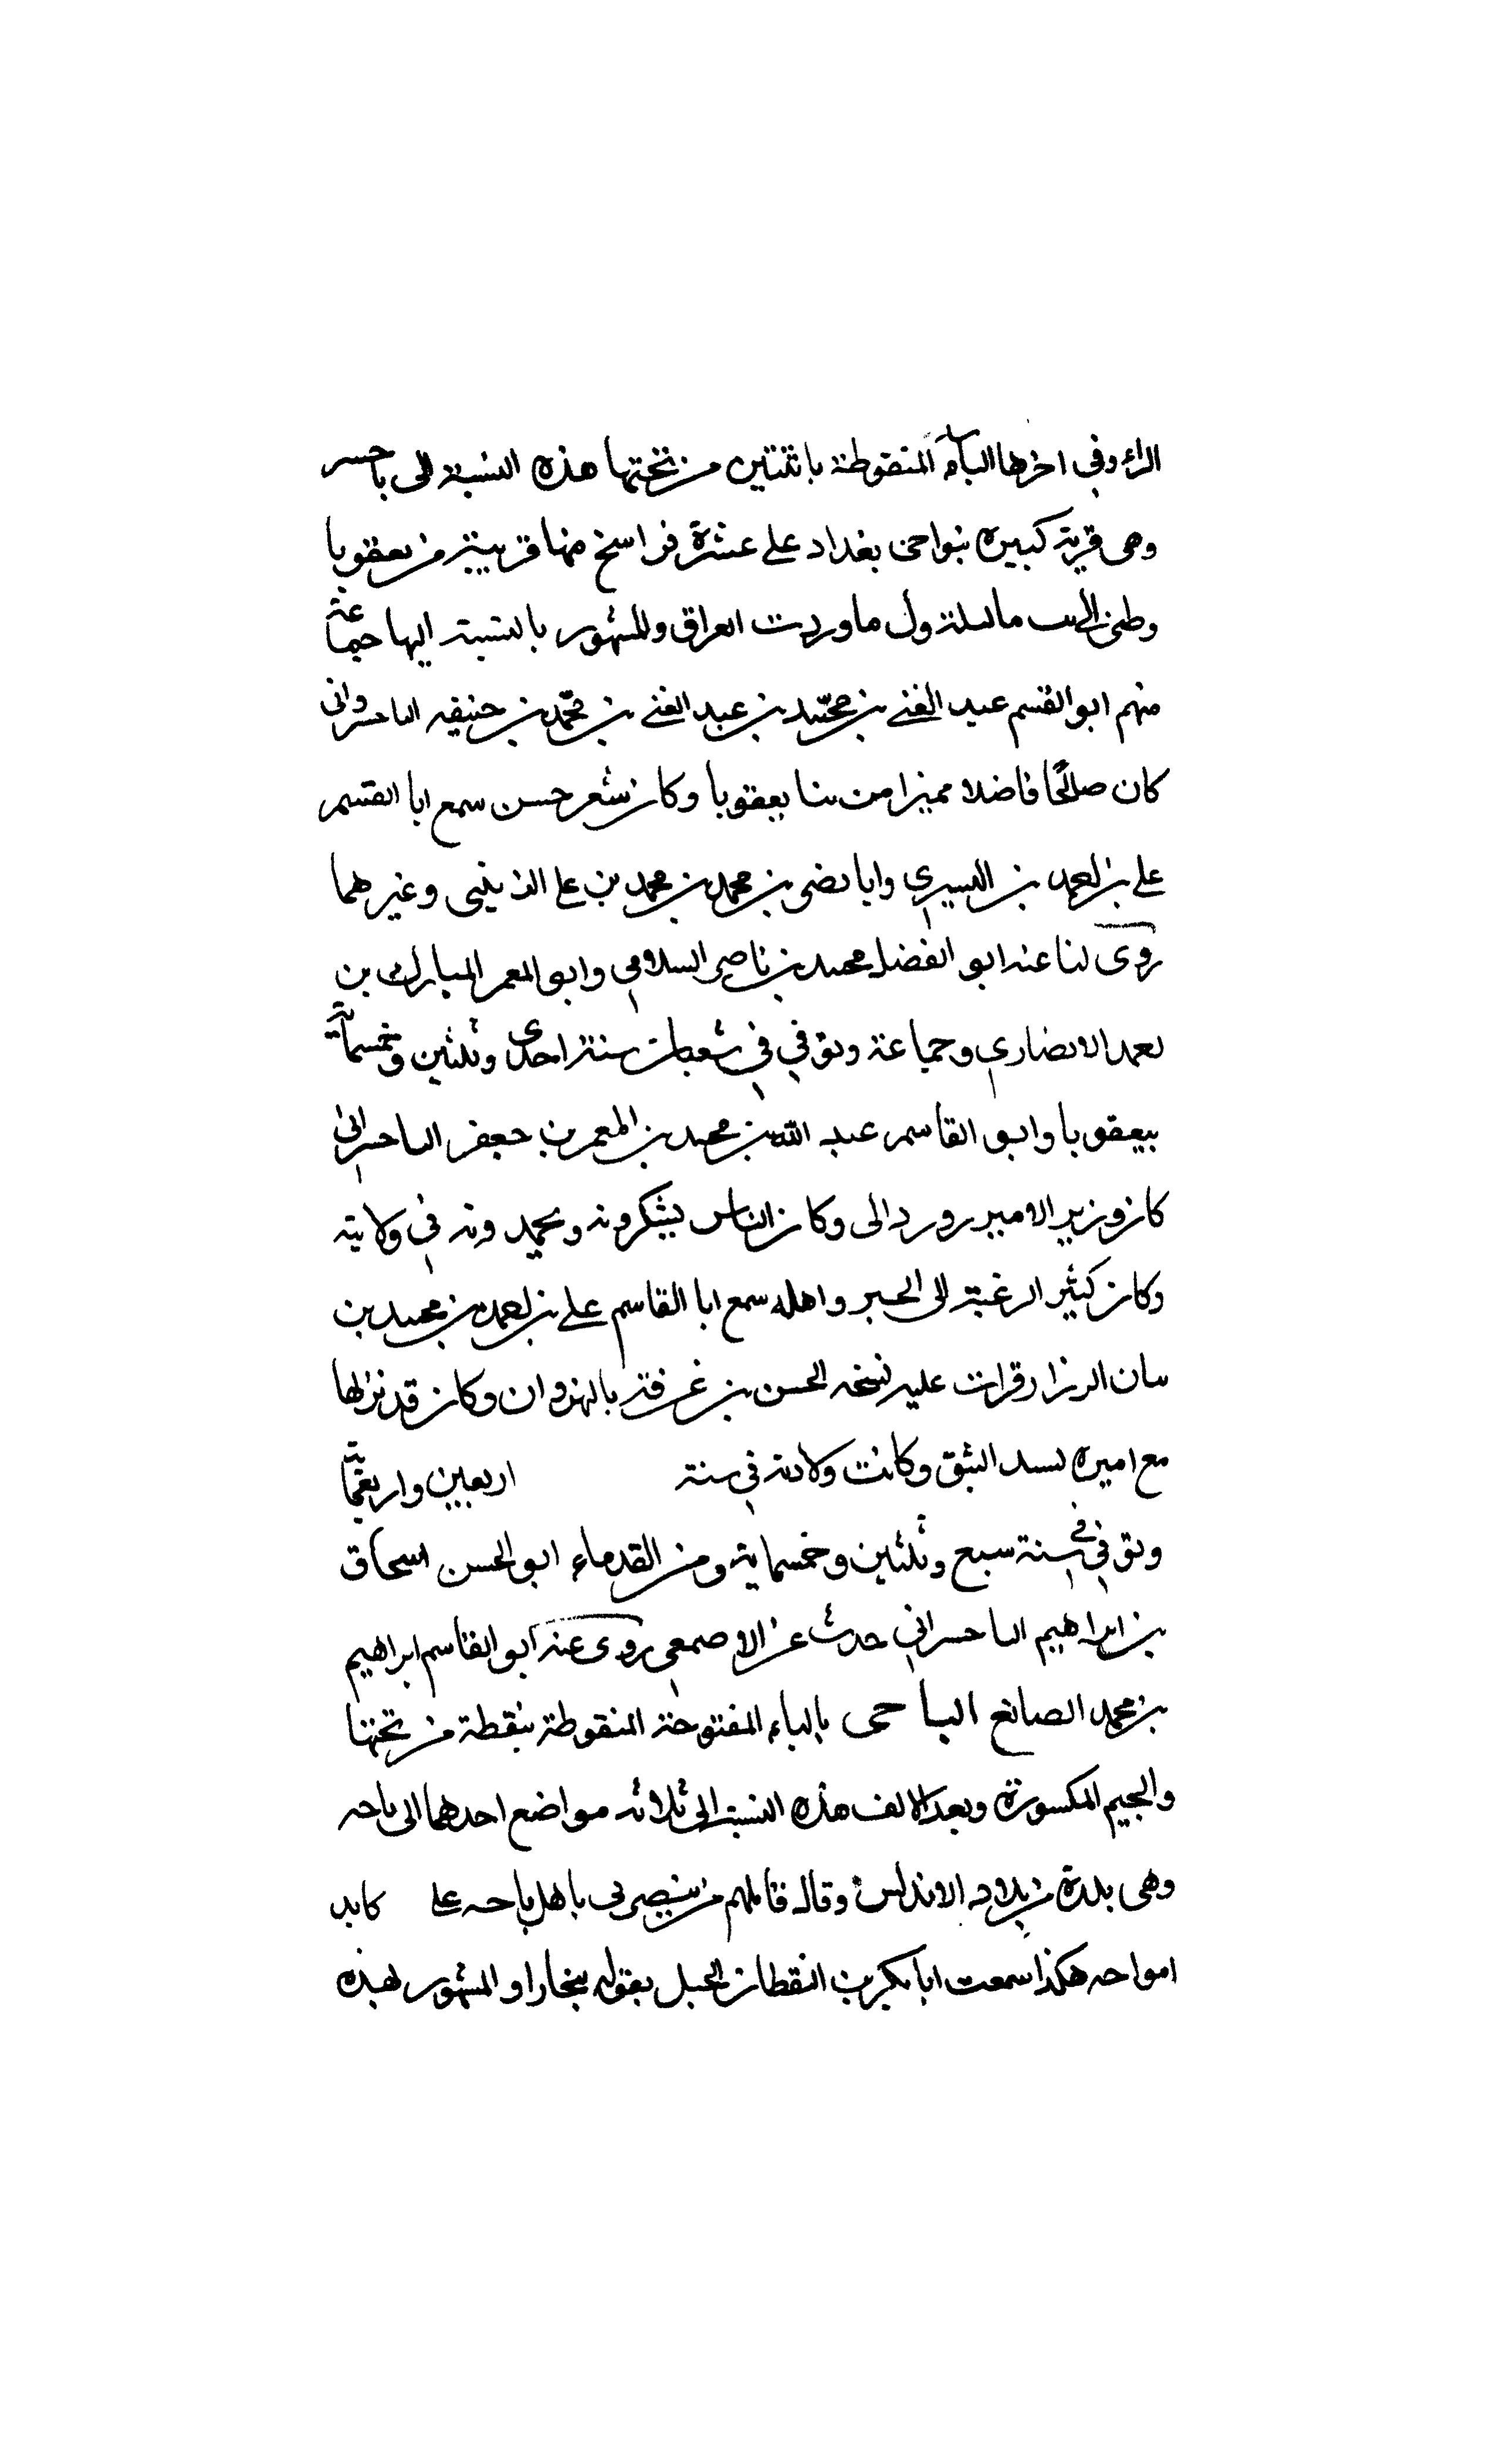 الراء وفي اخرها الياء المنقوطة باثنتين من تحتها هذه النسبة الى باجسر
وهى قرية كبيرة بنواحى بغداد على عشرة فراسخ منها قريبة من بعقوبا
وظنى بت ما ليلة ول ما وردت العراق والمشهور بالنسبة اليها جماعة
منهم ابو القسم عبد الغنى بن محمد بن عبد الغنى بن محمد بن حنيفه الباجسروانى
كان صالحًا فاضلا مميزا من بعقوبا وكان شعر حسن سمع ابا القسم
على بن احمد بن البسرى وابا نصر بن محمد بن محمد بن على الزينبى وغيرهما
روى لنا عنه ابو الفضل محمد بن ناصر السلامى وابو المعمر المبارك بن
احمد الانصارى وجماعة وتوفى فى شعبان سنة احدى وثلثين وخمسمائة
ببعقوبا وابو القاسم عبد الله بن محمد بن المعمر بن جعفر الباجسرانى
كان وزير الامير وكان الناس يشكرونه ويحمدونه فى ولايته
وكان كثير الرغبة الى الخير واهله سمع ابا القاسم على بن احمد بن محمد بن
بيان الرزاز قرات عليه نسخة الحسن بن عرفة بالنهروان وكان قد نزلها
مع اميره لسد البثق وكانت ولادته فى سنة اربعين واربعمائة
وتوفى فى سنة سبع وثلثين وخمسمائة ومن القدماء ابو الحسن اسحاق
بن ابراهيم الباجسرانى حدث عن الاصمعى روى عنه ابو القاسم ابراهيم
بن محمد الصائغ الباجى بالباء المفتوحة المنقوطة بنقطة من تحتها
والجيم المكسورة وبعد الالف هذه النسبة الى ثلاثة مواضع احدهما الى باجه
وهى بلدة من بلاد الاندلس وقال قائلهم من ينصرنى باهل باجه على كابد
امواجه هكذا سمعت ابا بكر بن القطان الجبل بقوله ببخارا والمشهور لهذه